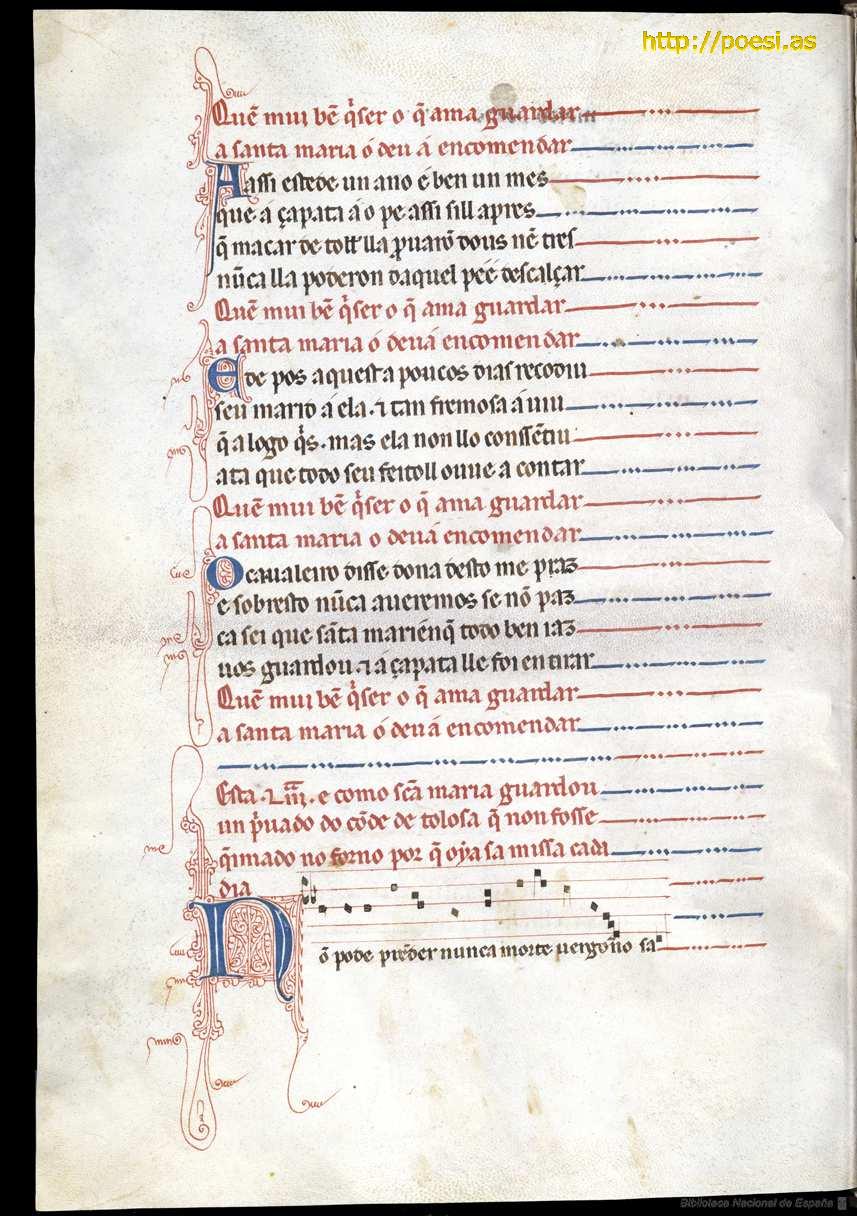 http://poesi.as
Quẽ mui bẽ q̇ser o q̃ ama guardar
a santa maria ó deu á encomendar
A assi esteue un ano e ben un mes
que á çapata á o pe assi sill apres
q̃ macar de toll lla ꝓuarõ dous nẽ tres
nũca lla poderon daquel pée descalçar
Quẽ mui bẽ q̇ser o q̃ ama guardar
a santa maria ó deuá encomendar
E de pos aquesta poucos dias recodiu
seu marid á ela. ⁊ tan fremosa á uiu
q̃ a logo q̇s. mas ela non llo conssẽtiu
ata que todo seu feitoll ouue a contar
Quẽ mui bẽ q̇ser o q̃ ama guardar
a santa maria o deuá encomendar
O caualeiro disse dona desto me praz
e sobresto nũca aueremos se nõ paz
ca sei que sãta mariénq̃ todo ben iaz
uos guardou. ⁊ á çapata lle foi en tirar
Quẽ mui bẽ q̇ser o q̃ ama guardar
a santa maria ó deuá encomendar
Esta .Liiii. e como scã maria guardou
un p̃uado do cõde de tolosa q̃ non fosse
q̃imado no forno por q̃ oÿa sa missa cada
dia
Nõ pode prẽder nunca morte uergõnosa
Biblioteca Nacional de España